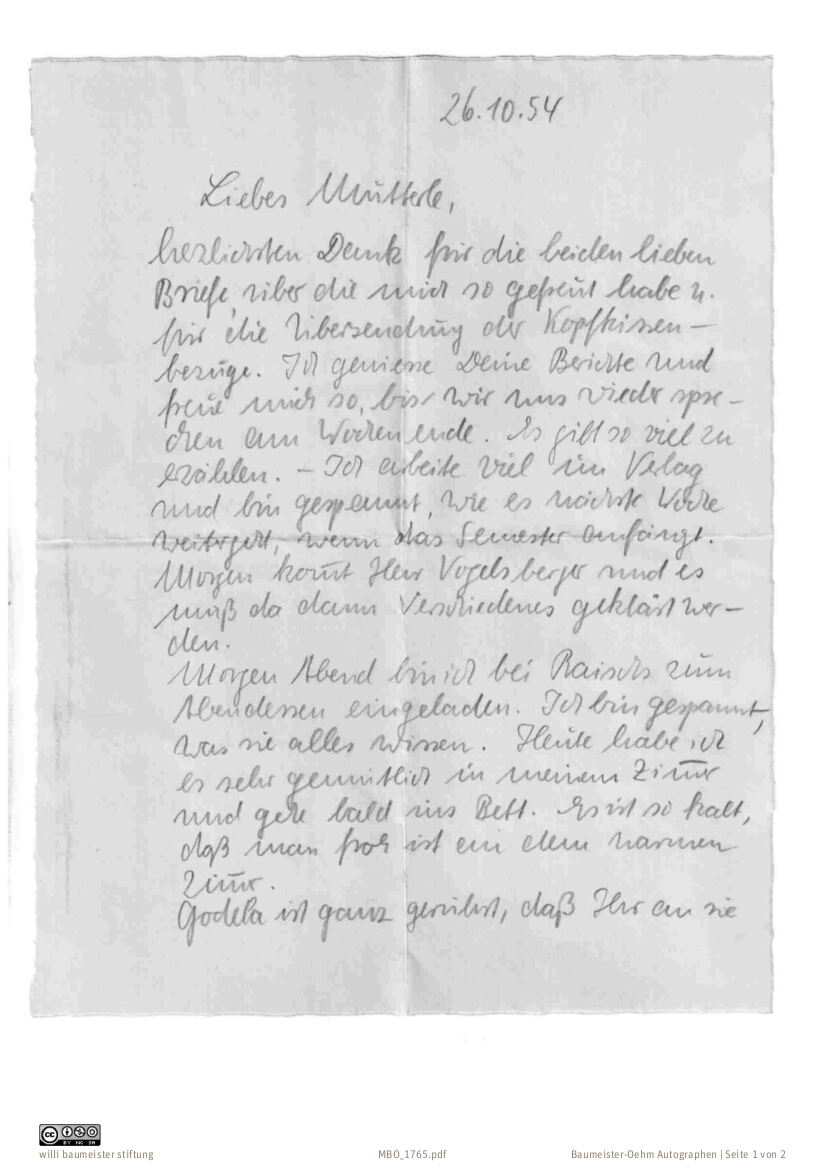 26.10.54
Liebes Mutterle,
herzlichsten Dank für die beiden lieben
Briefe, über die mich so gefreut habe u.
für die Übersendung der Kopfkissen-
bezüge. Ich geniesse Deine Berichte und
freue mich so, bis wir uns wieder spre-
chen am Wochenende. Es gibt so viel zu
erzählen. – Ich arbeite viel im Verlag
und bin gespannt, wie es nächste Woche
weitergeht, wenn das Semester anfängt.
Morgen kom̄t Herr Vogelsberger und es
muß da dann Verschiedenes geklärt wer-
den.
Morgen Abend bin ich bei Raischs zum
Abendessen eingeladen. Ich bin gespannt,
was sie alles wissen. Heute habe ich
es sehr gemütlich in meinem Zim̄er
und gehe bald ins Bett. Es ist so kalt,
daß man froh ist an dem warmen
Zim̄er.
Godela ist ganz gerührt, daß Ihr an sie
CC BY NC SA
willi baumeister stiftung
MBO_1765.pdf
Baumeister-Oehm Autographen | Seite 1 von 2